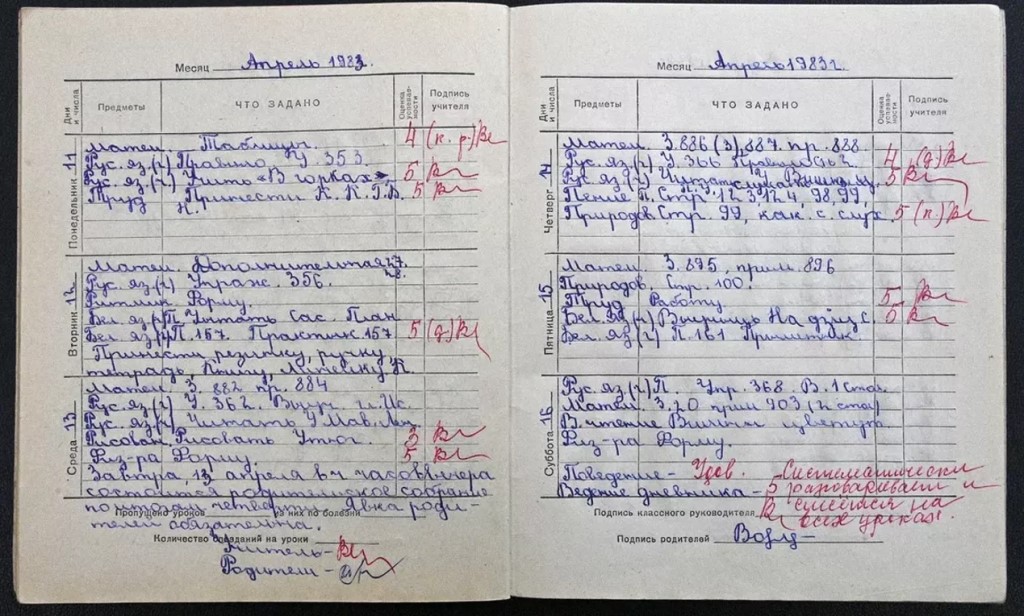 Месяц Апрель 1983.
Дни и числа
Предметы
ЧТО ЗАДАНО
Оценка успеваемости
Подпись учителя
Понедельник 11
Матем. Таблицы. 4 (к. р.)
Рус. яз. (г) Правило, У. 353.
Рус. яз. (г) Учить "В горках" 5
Труд Принести К. К. Г. В. 5
Н.
Вторник 12
Матем. Дополнительная 27.
28.
Рус. яз. (г) Упраж. 356.
Ритмик Форму.
Бел. яз. (г) П. Читать Сас. План
Бел. яз. (г) П. 157. Практик. 157 5 (д)
Принести резинку, ручку,
тетрадь, книгу, линейку, К.
Среда 13
Матем. З. 882 пр. 884
Рус. яз. (г) У. 362.
Рус. яз. (г) Читать У
Рисован. Рисовать Утюг.
Физ-ра Форму. 5
Завтра, 13 апреля в ч часов вечера
состоится родительское собрание
по итогам четверти. Явка роди-
телей обязательна.
Пропущено уроков из них по болезни
Количество опозданий на уроки
Учитель-
Родители-
Месяц Апрель 1983г.
Дни и числа
Предметы
ЧТО ЗАДАНО
Оценка успеваемости
Подпись учителя
Четверг 14
Матем. З. 886 (3), 887. пр. 888
Рус. яз. (г) У. 366 4 (д)
Рус. яз. (г) Читать 5
Пение П. Стр. 123, 124, 98, 99,
Природов. Стр. 99, как с. слух. 5 (п.)
Пятница 15
Матем. З. 895, прим. 896
Природов. Стр. 100.
Труд Работу. 5
Бел. яз. (г) Вывучыць На 5
Бел. яз. (г) П. 161
Суббота 16
Рус. яз. (г) П. Упр. 368. В. 1 Стол.
Матем. З. 20 прим 903 (2 стол)
В. чтение Вишни цветут.
Физ-ра Форму.
Поведение - Удов. - Систематически
Ведение дневника - 5 разговаривает и
смеется на
всех уроках.
Подпись классного руководителя
Подпись родителей